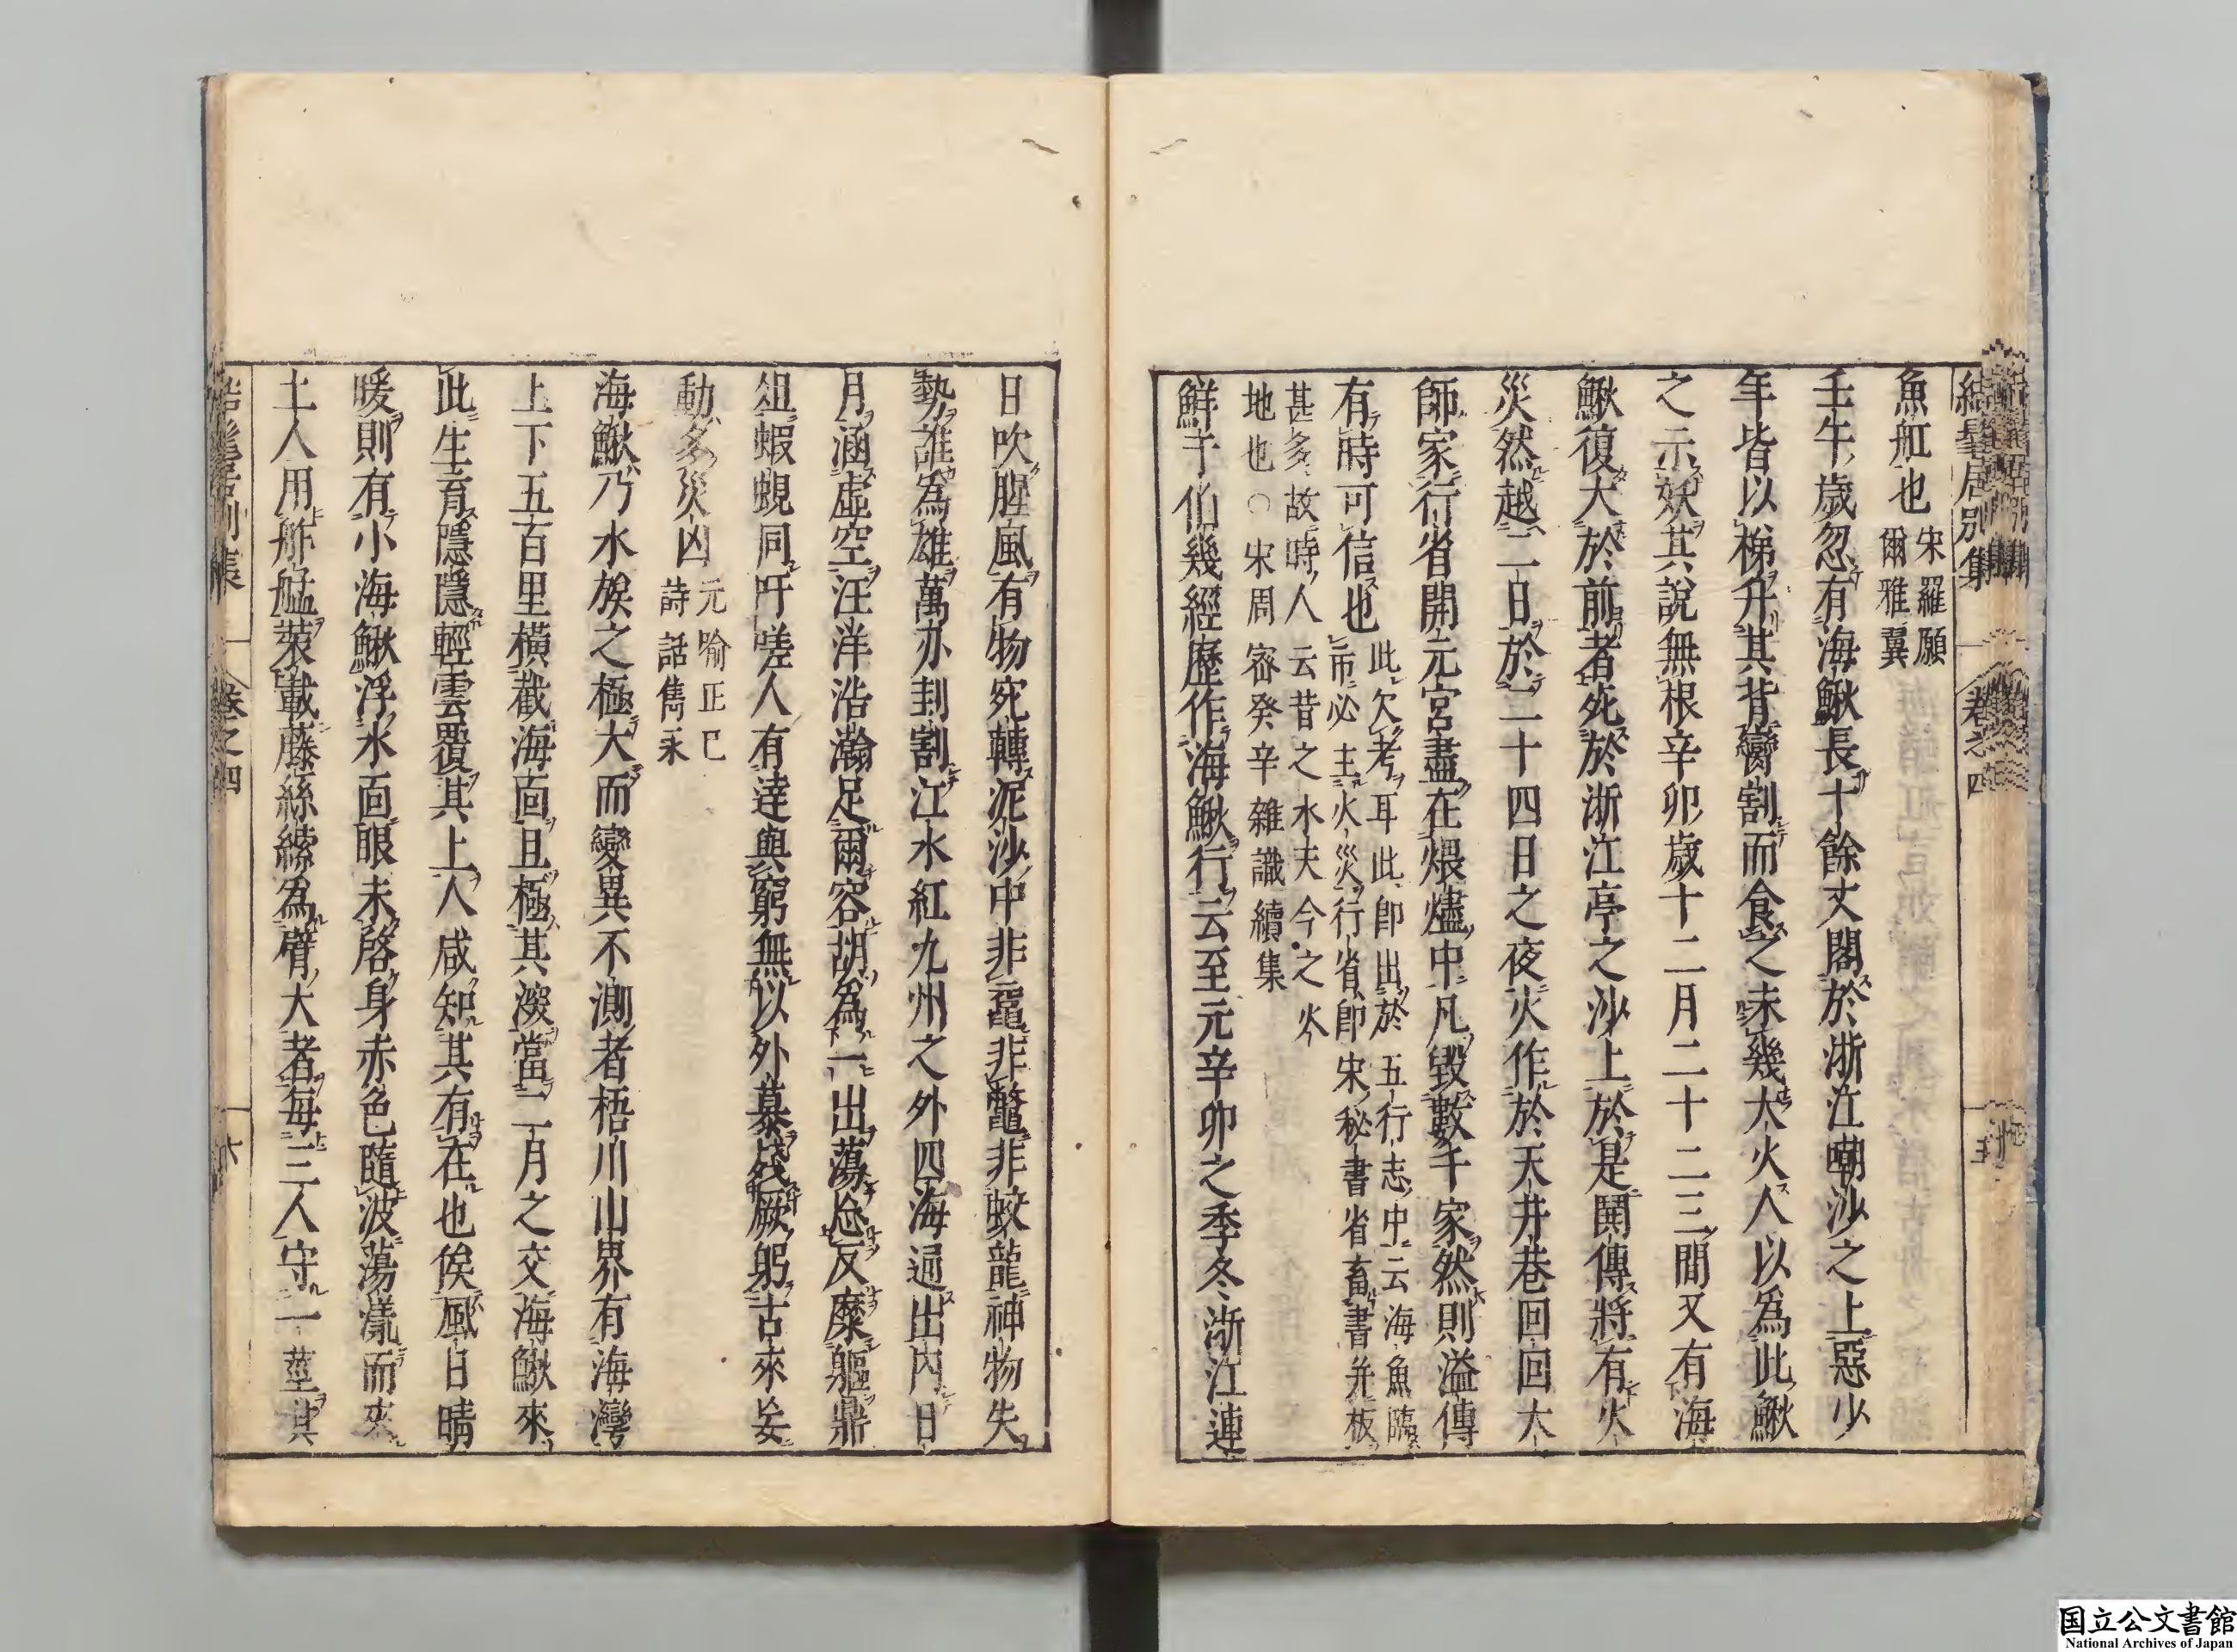 魚舡也宋羅願
爾雅翼
壬午歲忽有海鰍長十餘丈閣於浙江嘲沙之上惡少
年皆以梯升其背臠割而食之未幾大火人以爲此鰍
之示妖其說無根辛卯歲十二月二十二三間又有海
鰍復大於前者死於浙江亭之沙上於是鬨傳將有火
災然越二日於二十四日之夜火作於天井巷回回大
師家行省開元宮盡在煨燼中凡毀數千家然則溢傳
有時可信也此欠考耳此卽出於五行志中云海魚臨
市必主火災行省卽宋秘書省畜書并板
甚多故時人云昔之木天今之火
地也○宋周密癸辛雜識續集
鮮于伯幾經歷作海鰍行云至元辛卯之季冬浙江連
日吹腥風有物宛轉泥沙中非黿非鼈非蛟龍神物失
勢誰爲雄萬刅刲割江水紅九州之外四海逈出內日
月涵虛空汪洋浩瀚足爾容胡爲一出蕩忘反糜軀鼎
俎蝦蜆同吁嗟人有達與窮無以外慕戕厥躬古來妄
動多災凶元喻正己
詩話雋永
海鰍乃水族之極大而變異不測者梧川山界有海灣
上下五百里橫截海面且極其深當二月之交海鰍來
此生育隱隱輕雲覆其上人咸知其有在也俟風日晴
暖則有小海鰍浮水面眼未啓身赤色隨波蕩漾而來
土人用舴艋裝載藤絲纜爲臂大者每三人守一莖其
結毦居別集
卷之四
卷之四
六
国立公文書館
National Archives of Japan